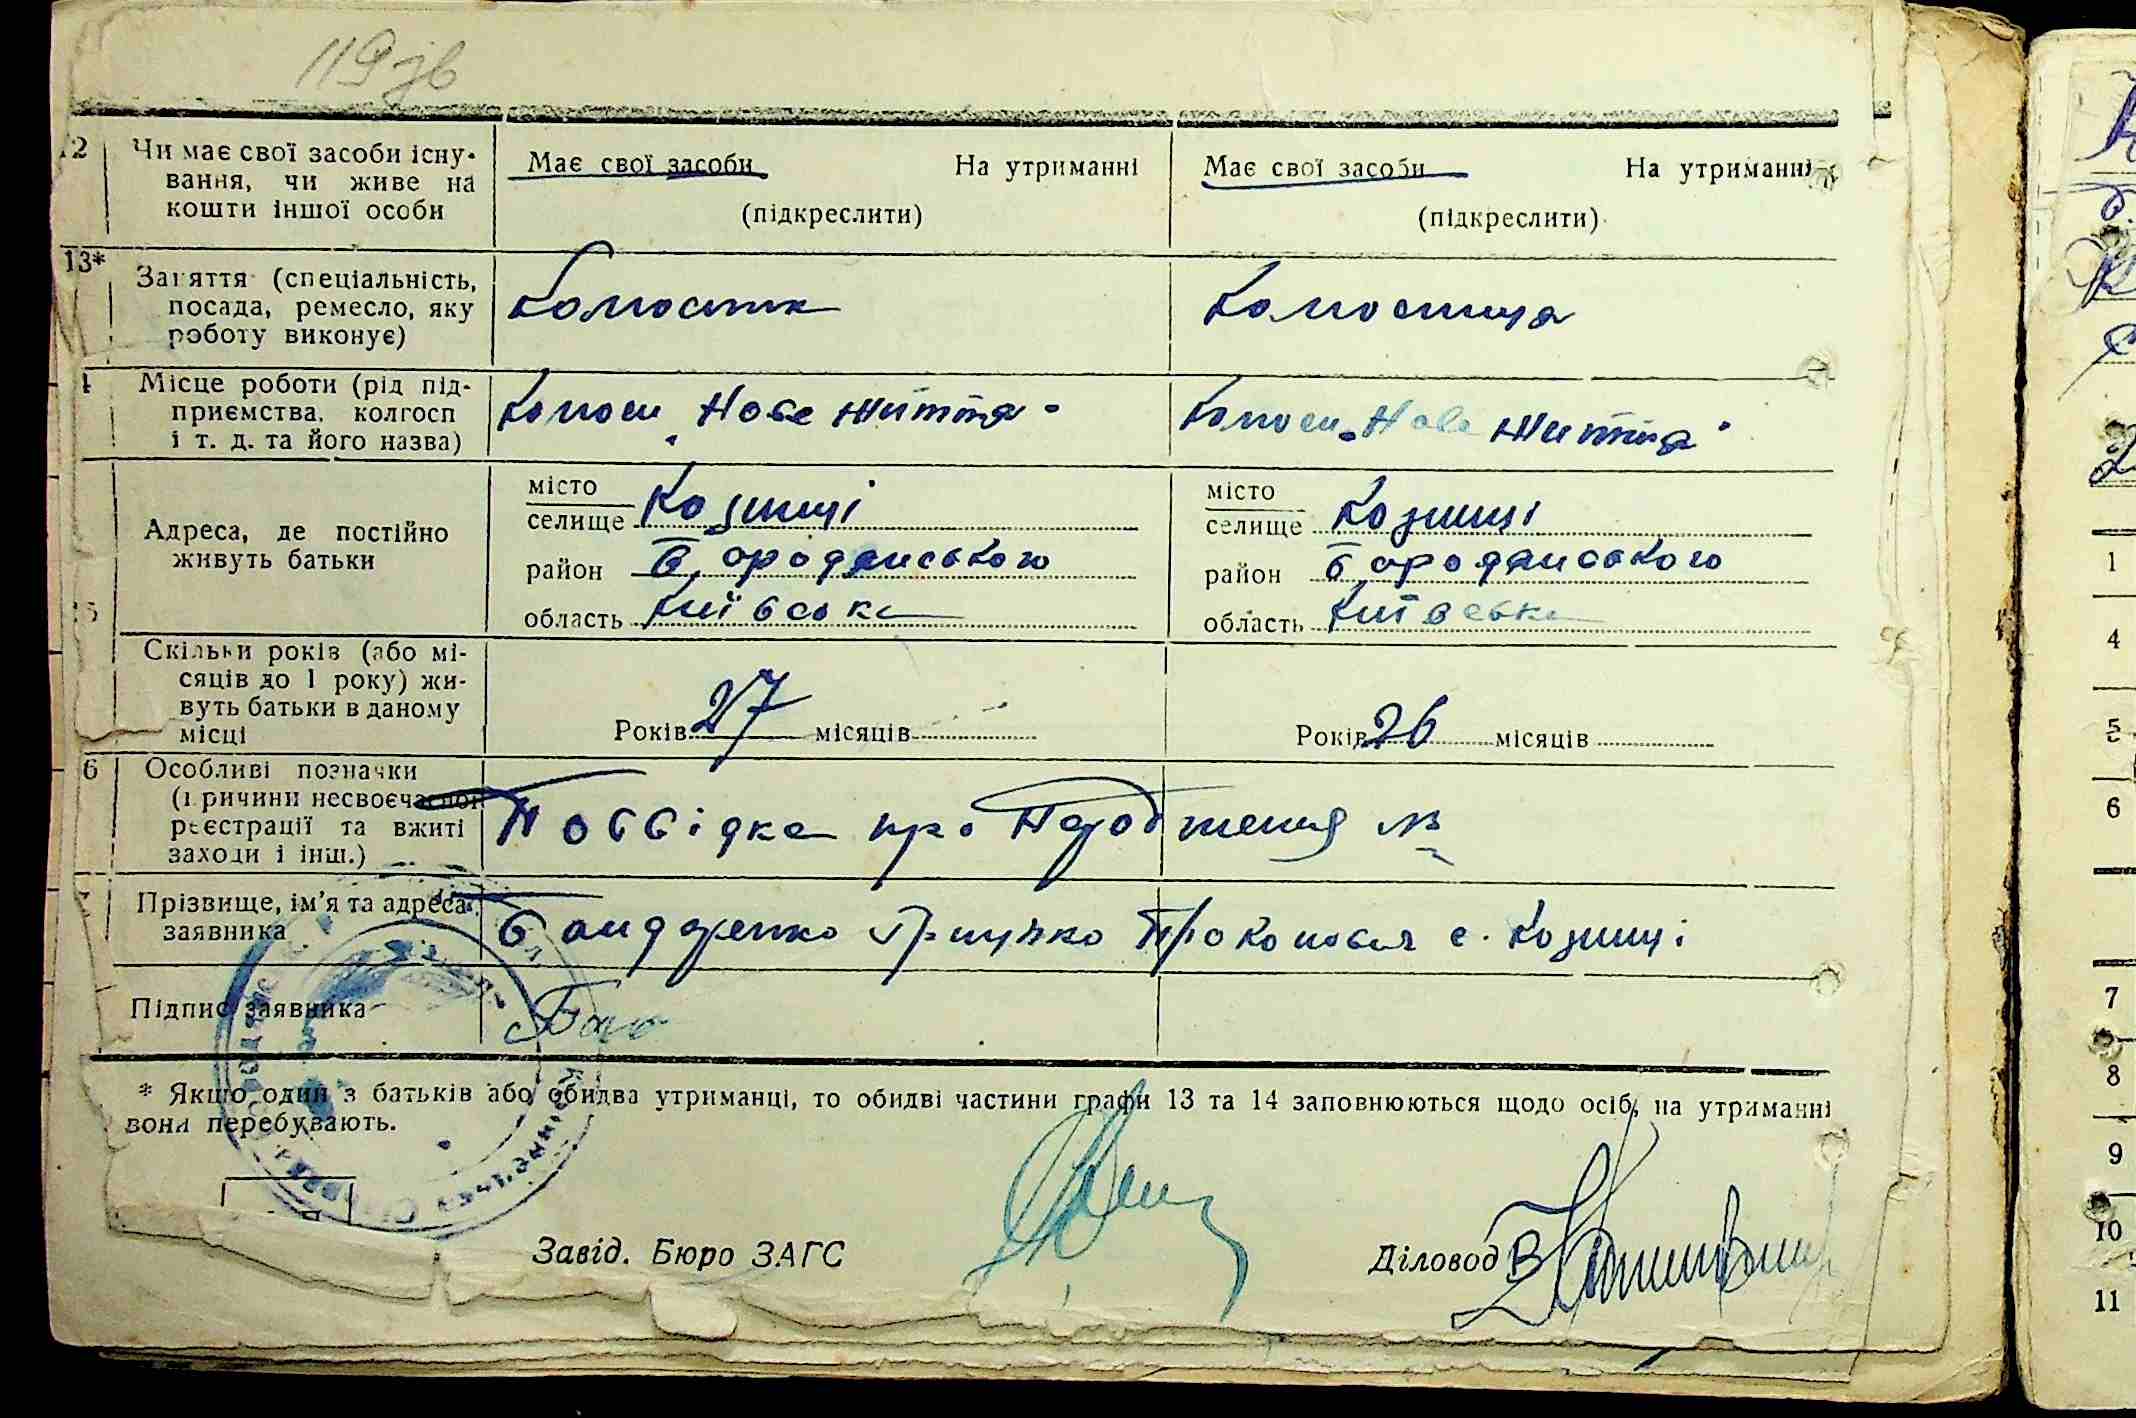 119зв
12 Чи має свої засоби існу-
вання, чи живе на
кошти іншої особи
Має свої засоби На утриманні
(підкреслити)
Має свої засоби На утриманні
(підкреслити)
13* Заняття (спеціальність,
посада, ремесло, яку
роботу виконує)
Колгоспник
Колгоспниця
4 Місце роботи (рід під-
приємства, колгосп
і т. д. та його назва)
Колгосп „Нове життя"
Колгосп „Нове життя"
Адреса, де постійно
живуть батьки
місто
селище Козинці
район Бородянського
область Київська
місто
селище Козинці
район Бородянського
область Київська
5 Скільки років (або мі-
сяців до 1 року) жи-
вуть батьки в даному
місці
Років 27 місяців
Років 26 місяців
6 Особливі позначки
(причини несвоєчасної
реєстрації та вжиті
заходи і інш.)
Повідка про Народження №
Прізвище, ім'я та адреса
заявника
Бондаренко Грицько Прокопович с. Козинці
Підпис заявника
Бон
* Якщо один з батьків або обидва утриманці, то обидві частини графи 13 та 14 заповнюються щодо осіб, на утриманні
вони перебувають.
Завід. Бюро ЗАГС
Діловод
1
4
5
6
7
8
9
10
11